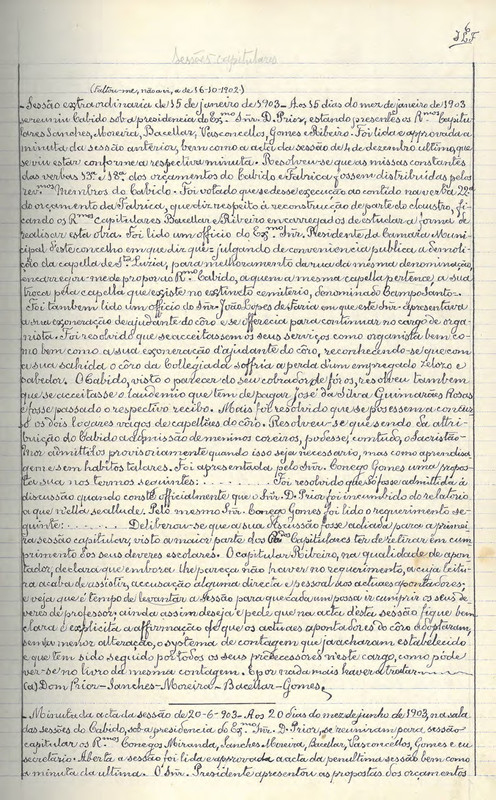 6
Sessões capitulares
(Faltou-me, não a vi, a de 16-10-1902)
Sessão extraordinaria de 15 de janeiro de 1903 – Aos 15 dias do mez de janeiro de 1903
se reuniu Cabido sob a presidencia do Ex.mo Snr. D. Prior, estando presentes os R.mos Capitu-
lares Sanches, Moreira, Bacellar, Vasconcellos, Gomes e Ribeiro. Foi lida e approvada a
minuta da sessão anterior, bem como a acta da sessão de 4 de dezembro ultimo, que
se viu estar conforme a respectiva minuta. Resolveu-se que as missas constantes
das verbas 13ª e 18ª dos orçamentos do Cabido e Fabrica fossem distribuidas pelos
rev.mos Membros do Cabido. Foi votado que se desse execução ao contido na verba 22ª
do orçamento da Fabrica, que diz respeito á reconstrução de parte do claustro, fi-
cando os R.mos capitulares Bacellar e Ribeiro encarregados de estudar a forma de
realisar esta obra. Foi lido um officio do Ex.mo Snr. Presidente da Camara Muni-
cipal d'este concelho em que diz que: julgando de conveniencia publica a demoli-
ção da capella de S.ta Luzia, para melhoramento da rua da mesma denominação,
encarrega-me de propor ao R.mo Cabido, a quem a mesma capella pertence, a sua
troca pela capella que existe no extincto cemiterio, denominado Campo Santo.
Foi tambem lido um officio do Snr. João Lopes de Faria em que este Snr. apresentava
a sua exoneração de ajudante do côro e se offerecia para continuar no cargo de orga-
nista. Foi resolvido que se acceitassem os seus serviços como organista bem co-
mo bem como a sua exoneração d'ajudante do côro, reconhecendo-se que com
a sua sahida o côro da Collegiada soffria a perda d'um empregado zeloso e
sabedor. O Cabido, visto o parecer do seu cobrador de fóros, resolveu tambem
que se acceitasse o laudemio que tem de pagar José da Silva Guimarães Rosas
e fosse passado o respectivo recibo. Mais foi resolvido que se pozessem a concur
so os dois logares vagos de capellães do côro. Resolveu-se que sendo da attri-
buição do Cabido a admissão de meninos coreiros, podesse, comtudo, o Sacristão-
mor admittil-os provisoriamente quando isso seja necessario, mas como aprendisa-
gem e sem habitos talares. Foi apresentada pelo Snr. Conego Gomes uma propos-
ta sua nos termos seguintes: . . . . . . . . Foi resolvido que só fosse admittida á
discussão quando conste officialmente que o Snr. D. Prior foi incumbido do relatorio
a que n'ella se allude. Pelo mesmo Snr. Conego Gomes foi lido o requerimento se-
guinte: . . . . . . . Deliberou-se que a sua discussão fosse adiada para a primei
ra sessão capitular, visto a maior parte dos Capitulares ter de retirar em cum
primento dos seus deveres escolares. O capitular Ribeiro, na qualidade de apon-
tador, declara que embora lhe pareça não haver no requerimento, a cuja leitu-
ra acaba de assistir, accusação alguma directa e pessoal aos actuaes apontadores;
e veja que é tempo de levantar a sessão para que cada um possa ir cumprir os seus de
veres de professor: ainda assim deseja e pede que na acta desta sessão fique bem
clara e explicita a affirmação de que os actuaes apontadores do côro adoptaram,
sem a menor alteração, o systema de contagem que já acharam estabelecido
e que tem sido seguido por todos os seus predecessores n'este cargo, como póde
ver-se no livro da mesma contagem. E por nada mais haver a tratar
(a) Dom Prior – Sanches – Moreira – Bacellar – Gomes
Minuta da acta da sessão de 20-6-903. Aos 20 dias do mez de junho de 1903, na sala
das sessões do Cabido, sob a presidencia do Ex.mo Snr. D. Prior, se reuniram para sessão
capitular os R.mos Conegos Miranda, Sanches, Moreira, Bacellar, Vasconcellos, Gomes e eu
secretario. Aberta a sessão foi lida e approvada a acta da penultima sessão bem como
a minuta da ultima. O Snr. Presidente apresentou as propostas dos orçamentos